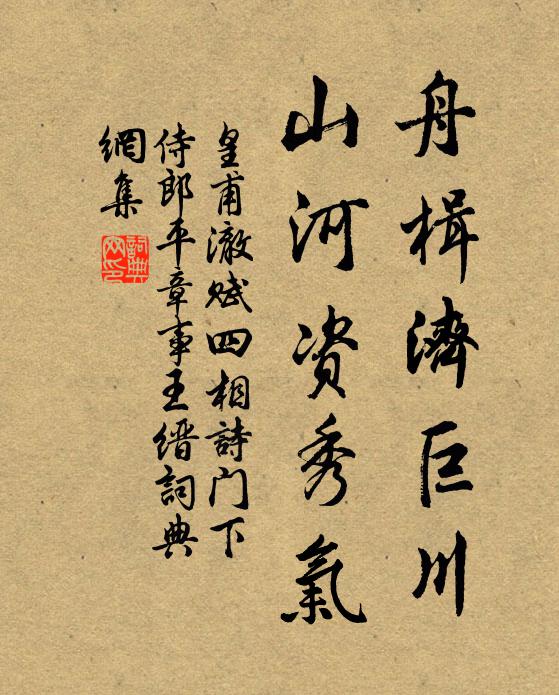 舟楫濟巨川
山河資秀氣
皇甫澈賦四相詩门下
侍郎平章事王缙詞典
網集
詞典
网印